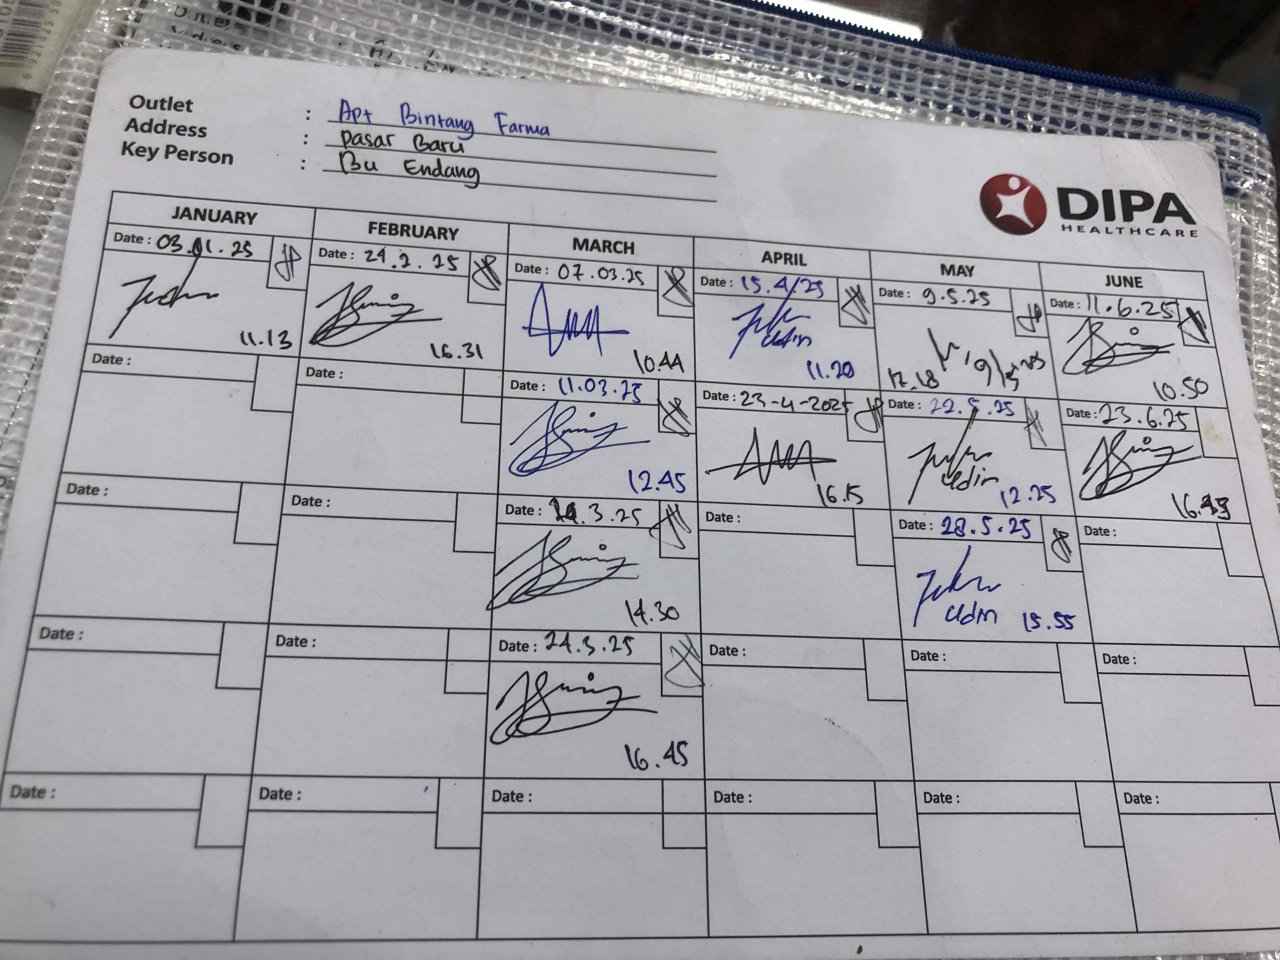 Outlet : Apt Bintang Farma
Address : Pasar Baru
Key Person : Bu Endang
DIPA
HEALTHCARE
JANUARY FEBRUARY MARCH APRIL MAY JUNE
Date : 03.01.25 Date : 24.2.25 Date : 07.03.25 Date : 15.4/25 Date : 9.5.25 Date : 11.6.25
11.13 16.31 10.44 11.20 17.18 10.50
Date : Date : Date : 11.03.25 Date : 23-4-2025 Date : 22.5.25 Date : 23.6.25
12.45 16.15 12.25
Date : Date : Date : .3.25 Date : Date : 28.5.25 Date :
14.30 15.55
Date : Date : Date : 24.3.25 Date : Date : Date :
16.45
Date : Date : Date : Date : Date : Date :